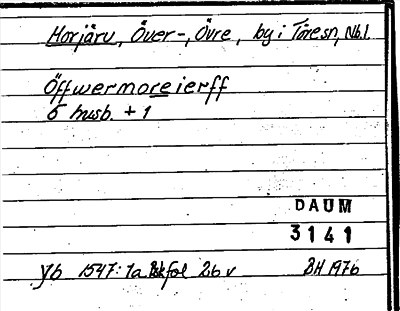 Morjärv, Över-, Övre, by i Töresn, Nb.l.
Öffwermoreierff
5 husb. + 1
DAUM
3141
Yb 1547: 1a Bskfol 26 v BH 1976